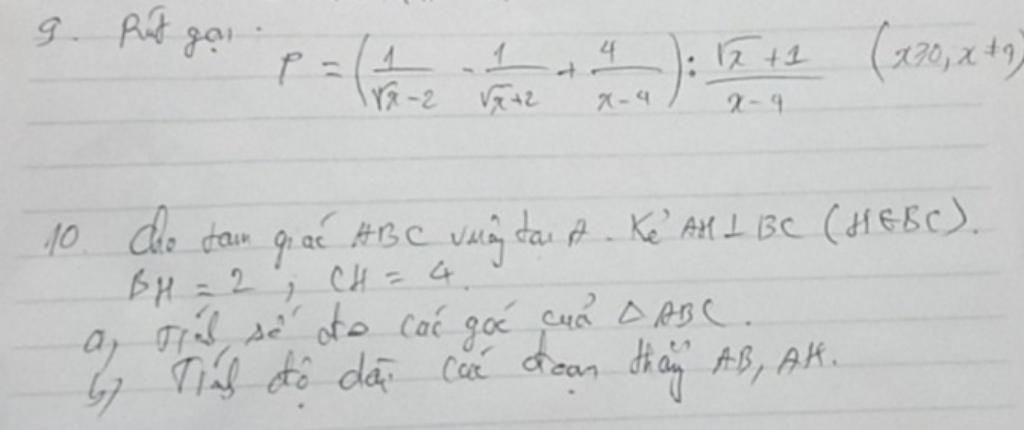 9. Rút gọn.
P = (1/(√x-2) - 1/(√x+2) + 4/(x-4)) : (√x+1)/(x-4) (x≥0, x≠4)
10. Cho tam giác ABC vuông tại A. Kẻ AH⊥BC (H∈BC).
BH = 2; CH = 4.
a, Tính số đo các góc của ΔABC.
b) Tính độ dài các đoạn thẳng AB, AH.